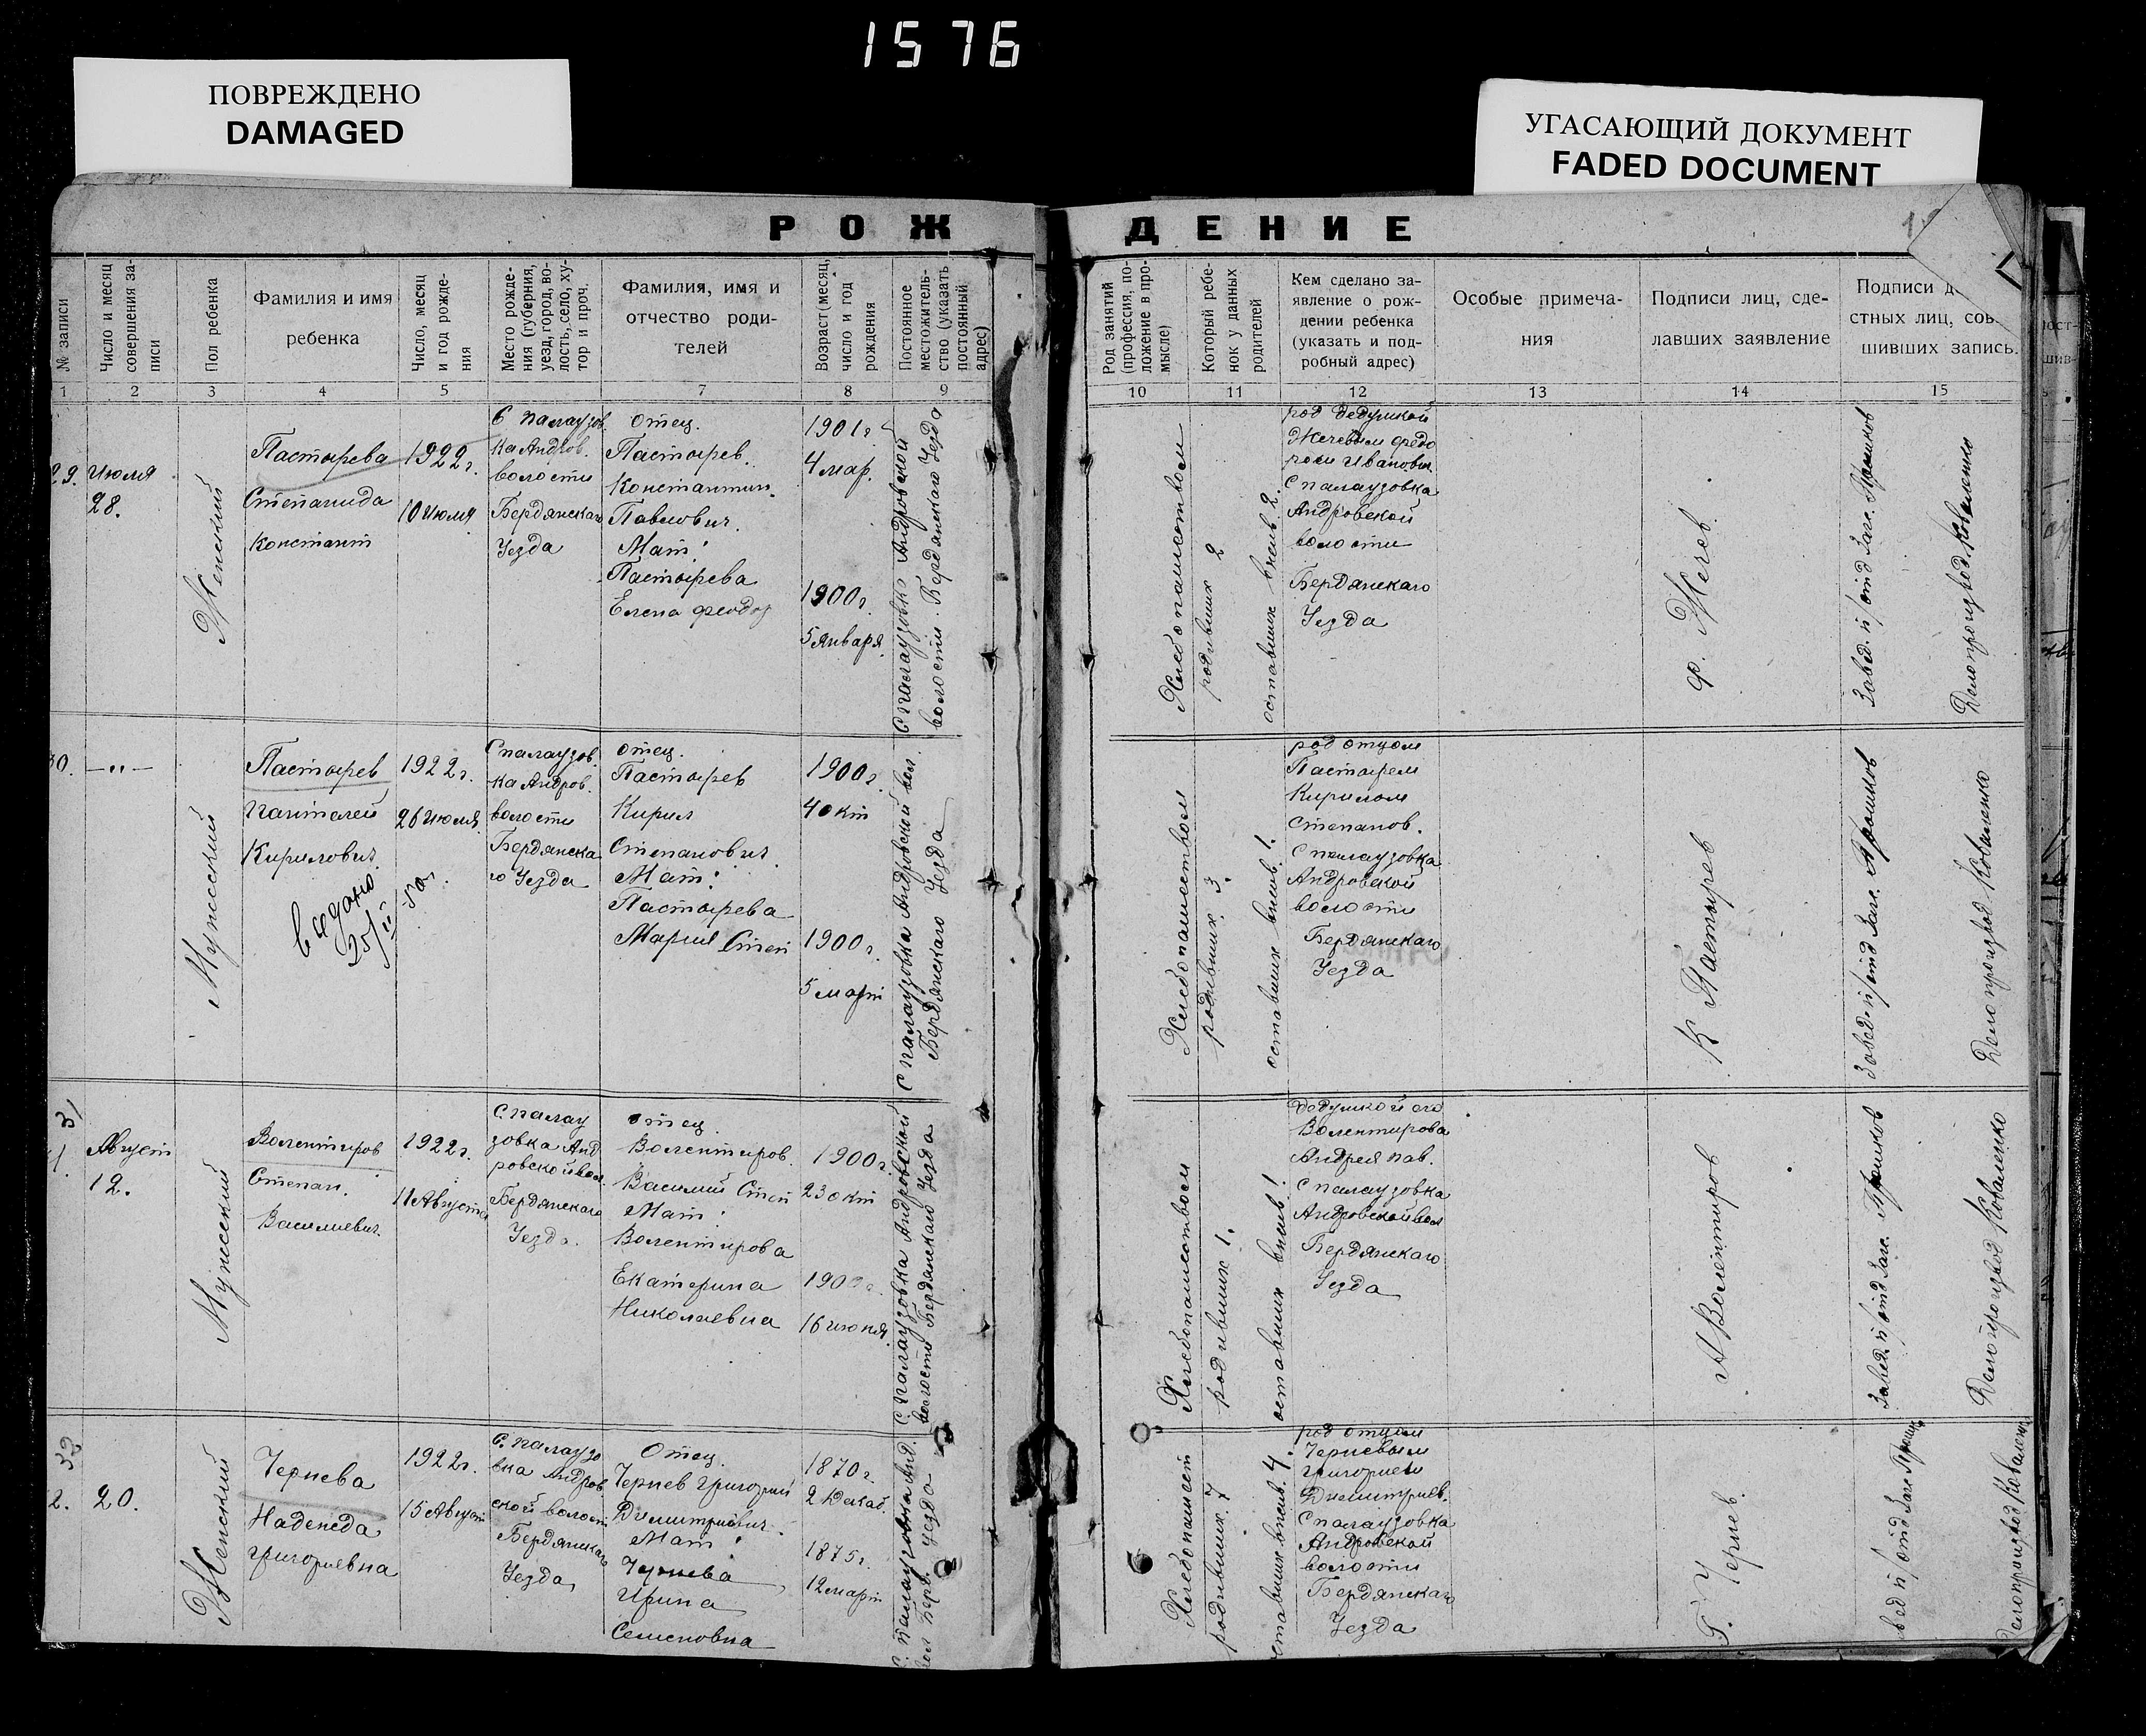 1576
ПОВРЕЖДЕНО
DAMAGED
УГАСАЮЩИЙ ДОКУМЕНТ
FADED DOCUMENT
РОЖДЕНИЕ
№ записи
Число и месяц совершения за-
писи
Пол ребенка
Фамилия и имя
ребенка
Число, месяц
и год рожде-
ния
Место рожде-
ния (губерния,
уезд, город, во-
лость, село, ху-
тор и проч.
Фамилия, имя и
отчество роди-
телей
Возраст (месяц,
число и год
рождения
Постоянное
местожитель-
ство (указать
постоянный
адрес)
Род занятий
(профессия, по-
ложение в про-
мысле)
Который ребе-
нок у данных
родителей
Кем сделано за-
явление о рож-
дении ребенка
(указать и под-
робный адрес)
Особые примеча-
ния
Подписи лиц, сде-
лавших заявление
Подписи
стных лиц, сов
шивших запись.
1 2 3 4 5 6 7 8 9 10 11 12 13 14 15
29.
Июля
28.
Женский
Пастырева
Степанида
Констант
1922г.
10 Июля
С Палаузов
ка Андров.
волости
Бердянскаго
Уезда
отец.
Пастырев
Константин.
Павлович.
Мат:
Пастырева
Елена Феодор
1901г.
4 мар.
1900г.
5 Января.
С Палаузовка Андровской
волости Бердянскаго Уезда
Хлебопашеством
родивших 2
оставших вжив 2.
род дедушкой
Жечевым Федо
ром Иванович
С Палаузовка
Андровской
волости
Бердянскаго
Уезда
Ф. Жечев.
Завед. п/отд Загс.
Делопроизвод. Коваленко
30.
—"—
Мужеский
Пастырев
Пантелей
Кирилович.
выдано
25/II 50г.
1922г.
26 Июля.
С Палаузов.
ка Андров.
волости
Бердянска
го Уезда
отец.
Пастырев
Кирил
Степанович.
Мат:
Пастырева
Мария Степ
1900г.
4 окт
1900г.
5 март
С Палаузовка Андровской вол.
Бердянскаго Уезда
Хлебопашеством
родивших 3.
оставших вжив 1.
род отцом
Пастырем
Кирилом
Степанов.
С Палаузовка
Андровской
волости
Бердянскаго
Уезда
К Пастырев
Завед. п/отд Загс.
Делопроизвод Коваленко
31
Август
12.
Мужеский
Волентиров
Степан.
Василиевич.
1922г.
11 Августа
С. Палау
зовка Анд
ровской вол.
Бердянскаго
Уезда.
отец.
Волентиров.
Василий Степ
Мат:
Волентирова
Екатерина
Николаевна
1900г.
23 окт
16 июня.
С. Палаузовка Андровской
волости Бердянскаго Уезда
Хлебопашеством
родившик 1.
оставших вжив 1.
дедушкой его
Волентирова
Андрея Пав.
С Палаузовка
Андровской вол
Бердянскаго
Уезда
А Волентиров
Завед. п/отд Загс.
Делопроизвод Коваленко
32
20.
Женский
Чернева
Надежда
Григориевна
1922г.
15 Август
С. Палаузо
вка Андров
ской волост
Бердянскаго
Уезда,
Отец.
Чернев Григорий
Димитриевич.
Мат:
Чернева
Ирина
Семеновна
1870г.
2 Декаб.
1875г.
12 март
С. Палаузовка Анд.
вол Берд. Уезда
Хлебопашест
родивших 7
оставших вжив. 4.
род отцом
Черневым
Григорием
Димитриев.
С Палаузовка
Андровской
волости
Бердянскаго
Уезда
Г. Чернев.
п/отд Загс
Делопроизвод Коваленко